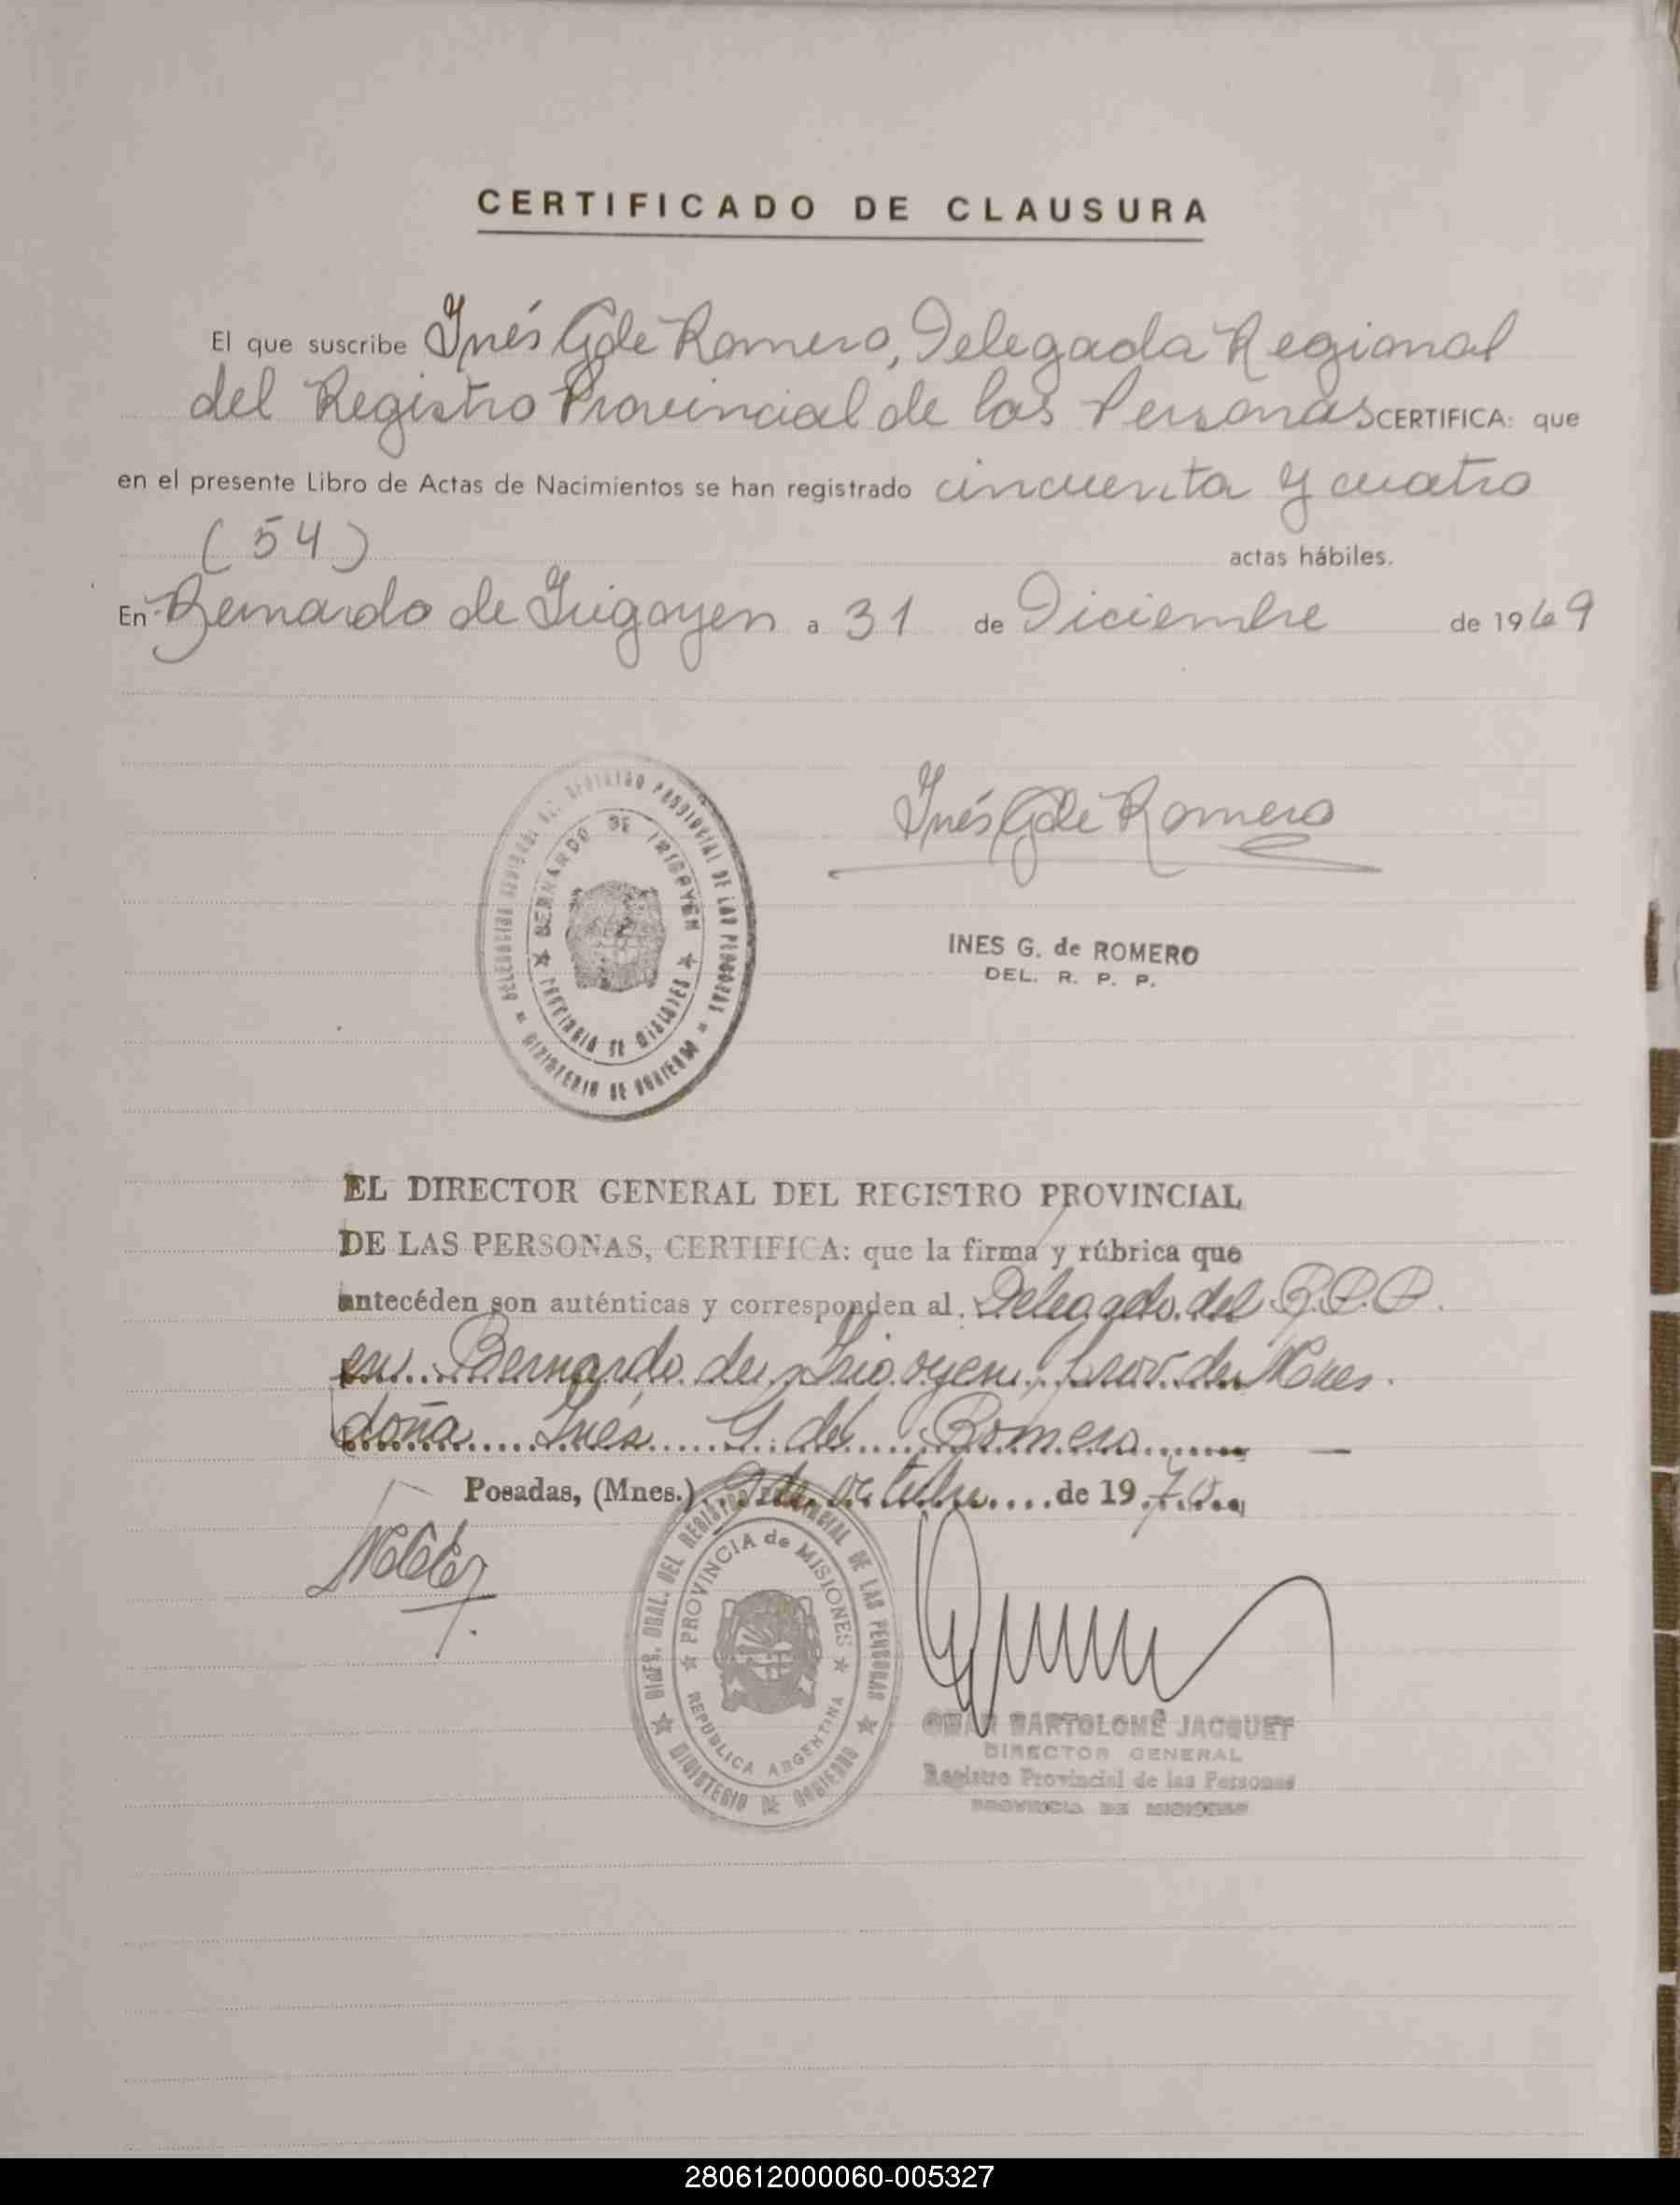 CERTIFICADO DE CLAUSURA
El que suscribe Inés G de Romero, Delegada Regional
del Registro Provincial de las Personas CERTIFICA: que
en el presente Libro de Actas de Nacimientos se han registrado cincuenta y cuatro
(54) actas hábiles.
En Bernardo de Irigoyen a 31 de Diciembre de 1969
DELEGACION REGIONAL DEL REGISTRO PROVINCIAL DE LAS PERSONAS
★ BERNARDO DE IRIGOYEN ★
PROVINCIA DE MISIONES
MINISTERIO DE GOBIERNO
Inés G de Romero
INES G. de ROMERO
DEL. R. P. P.
EL DIRECTOR GENERAL DEL REGISTRO PROVINCIAL
DE LAS PERSONAS, CERTIFICA: que la firma y rúbrica que
antecéden son auténticas y corresponden al Delegado del R.P.P.
en Bernardo de Irigoyen, de Mnes.
doña Inés G. de Romero
Posadas, (Mnes.) 9 de octubre de 1970
DIREC. GRAL. DEL REGISTRO PROVINCIAL DE LAS PERSONAS
★ PROVINCIA de MISIONES ★
REPUBLICA ARGENTINA
★ MINISTERIO DE GOBIERNO ★
OMAR BARTOLOMÉ JACQUET
DIRECTOR GENERAL
Registro Provincial de las Personas
PROVINCIA DE MISIONES
280612000060-005327